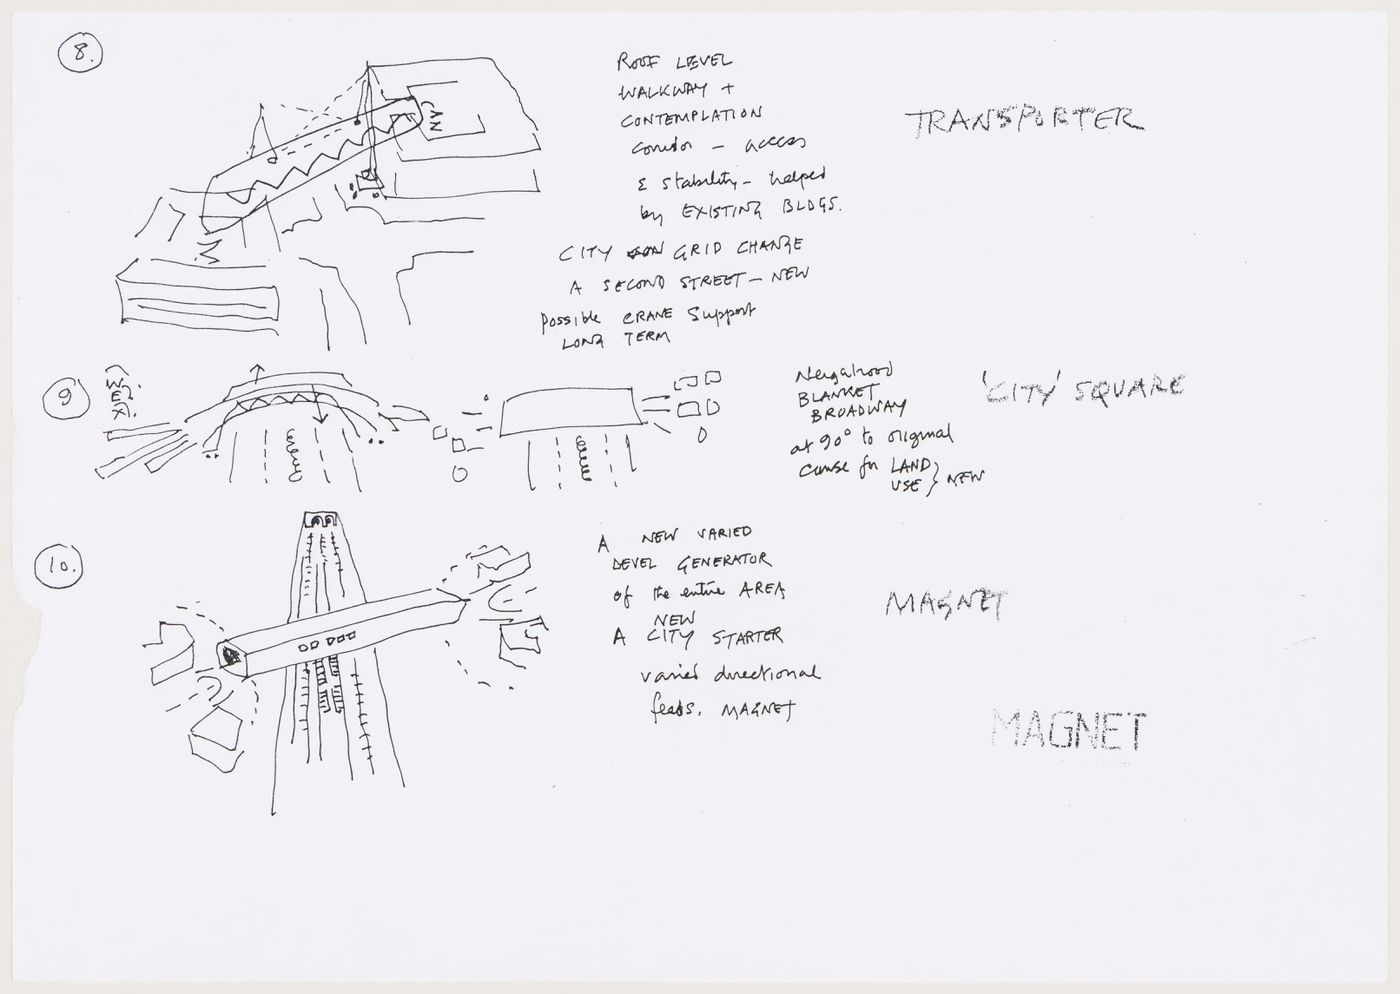 8.
ROOF LEVEL
WALKWAY +
CONTEMPLATION
corridor – access
& stability – helped
by EXISTING BLDGS.
CITY GRID CHANGE
A SECOND STREET – NEW
possible CRANE Support
LONG TERM
TRANSPORTER
9
Neigahood
BLANKET
BROADWAY
at 90° to original
course for LAND
USE } NEW
'CITY' SQUARE
10.
A NEW VARIED
LEVEL GENERATOR
of the entire AREA
NEW
A CITY STARTER
varied directional
feeds. MAGNET
MAGNET
MAGNET